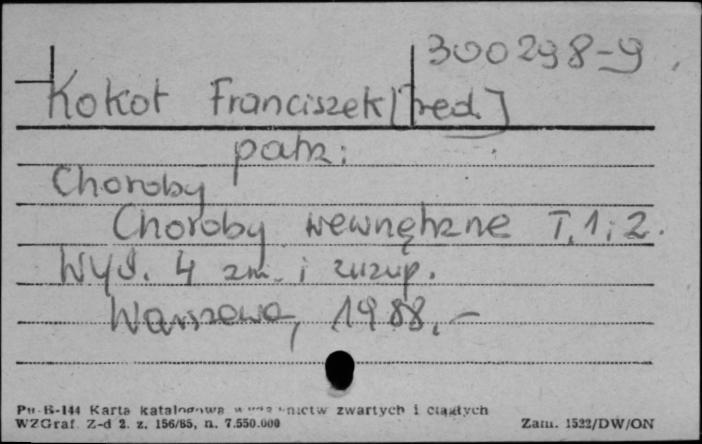 300298-9
Kokot Franciszek [red.]
patrz:
Choroby
Choroby wewnętrzne T. 1 i 2.
Wyd. 4 zm. i uzup.
Warszawa, 1988.-
Pu-B-144 Karta katalogowa wydawnictw zwartych i ciągłych
WZGraf. Z-d 2. z. 156/85, n. 7.550.000
Zam. 1522/DW/ON